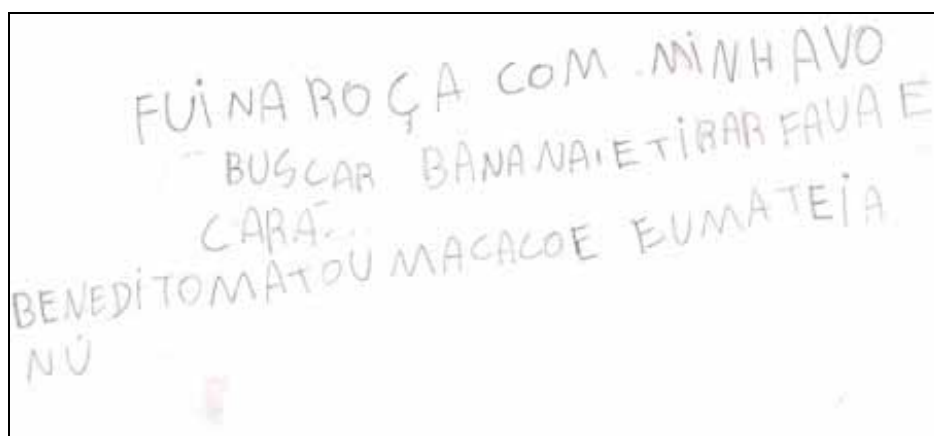 FUI NA ROÇA COM MINHAVO
BUSCAR BANANA, E TIRAR FAVA E
CARÁ.
BENEDITOMATOU MACACOE EUMATEIA
NÚ